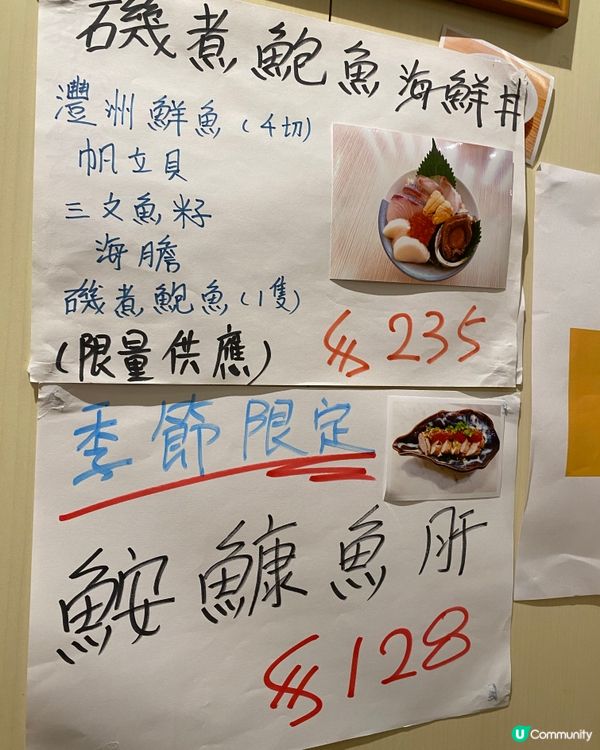 磯煮鮑魚海鮮丼
灃州鮮魚(4切)
帆立貝
三文魚籽
海膽
磯煮鮑魚(1隻)
(限量供應)
$235
季節限定
鮟鱇魚肝
$128
U Community